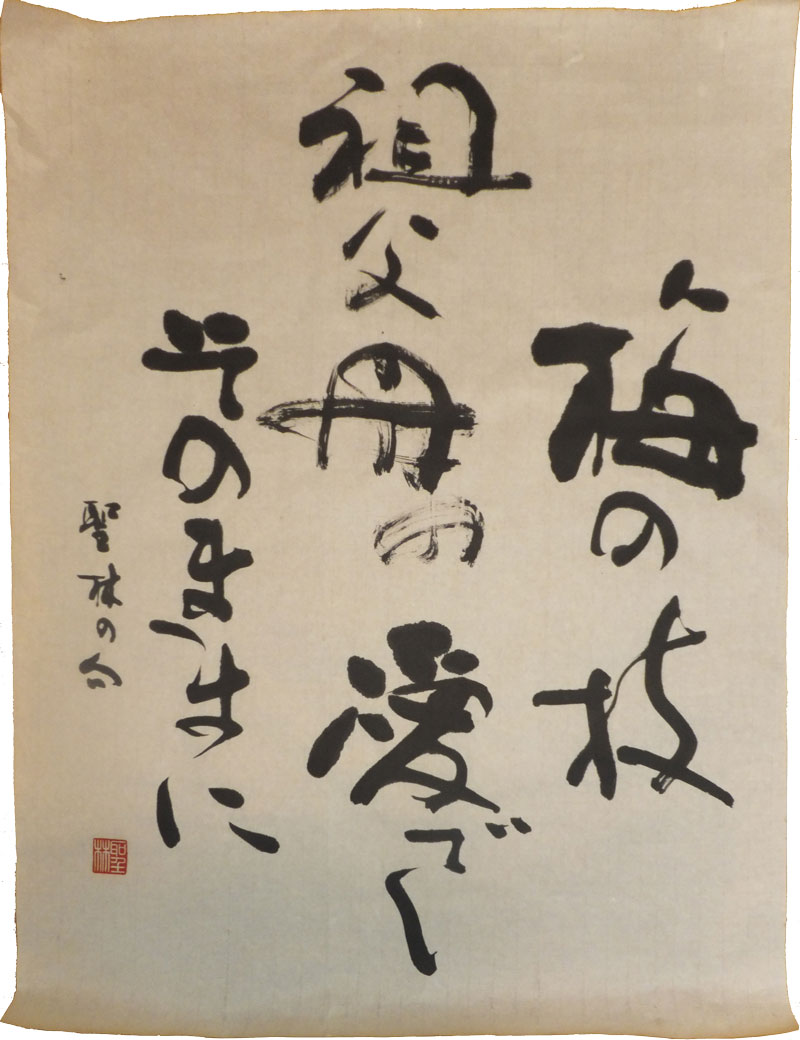 梅の枝
祖父母の愛でし
そのままに
聖林の句
聖林